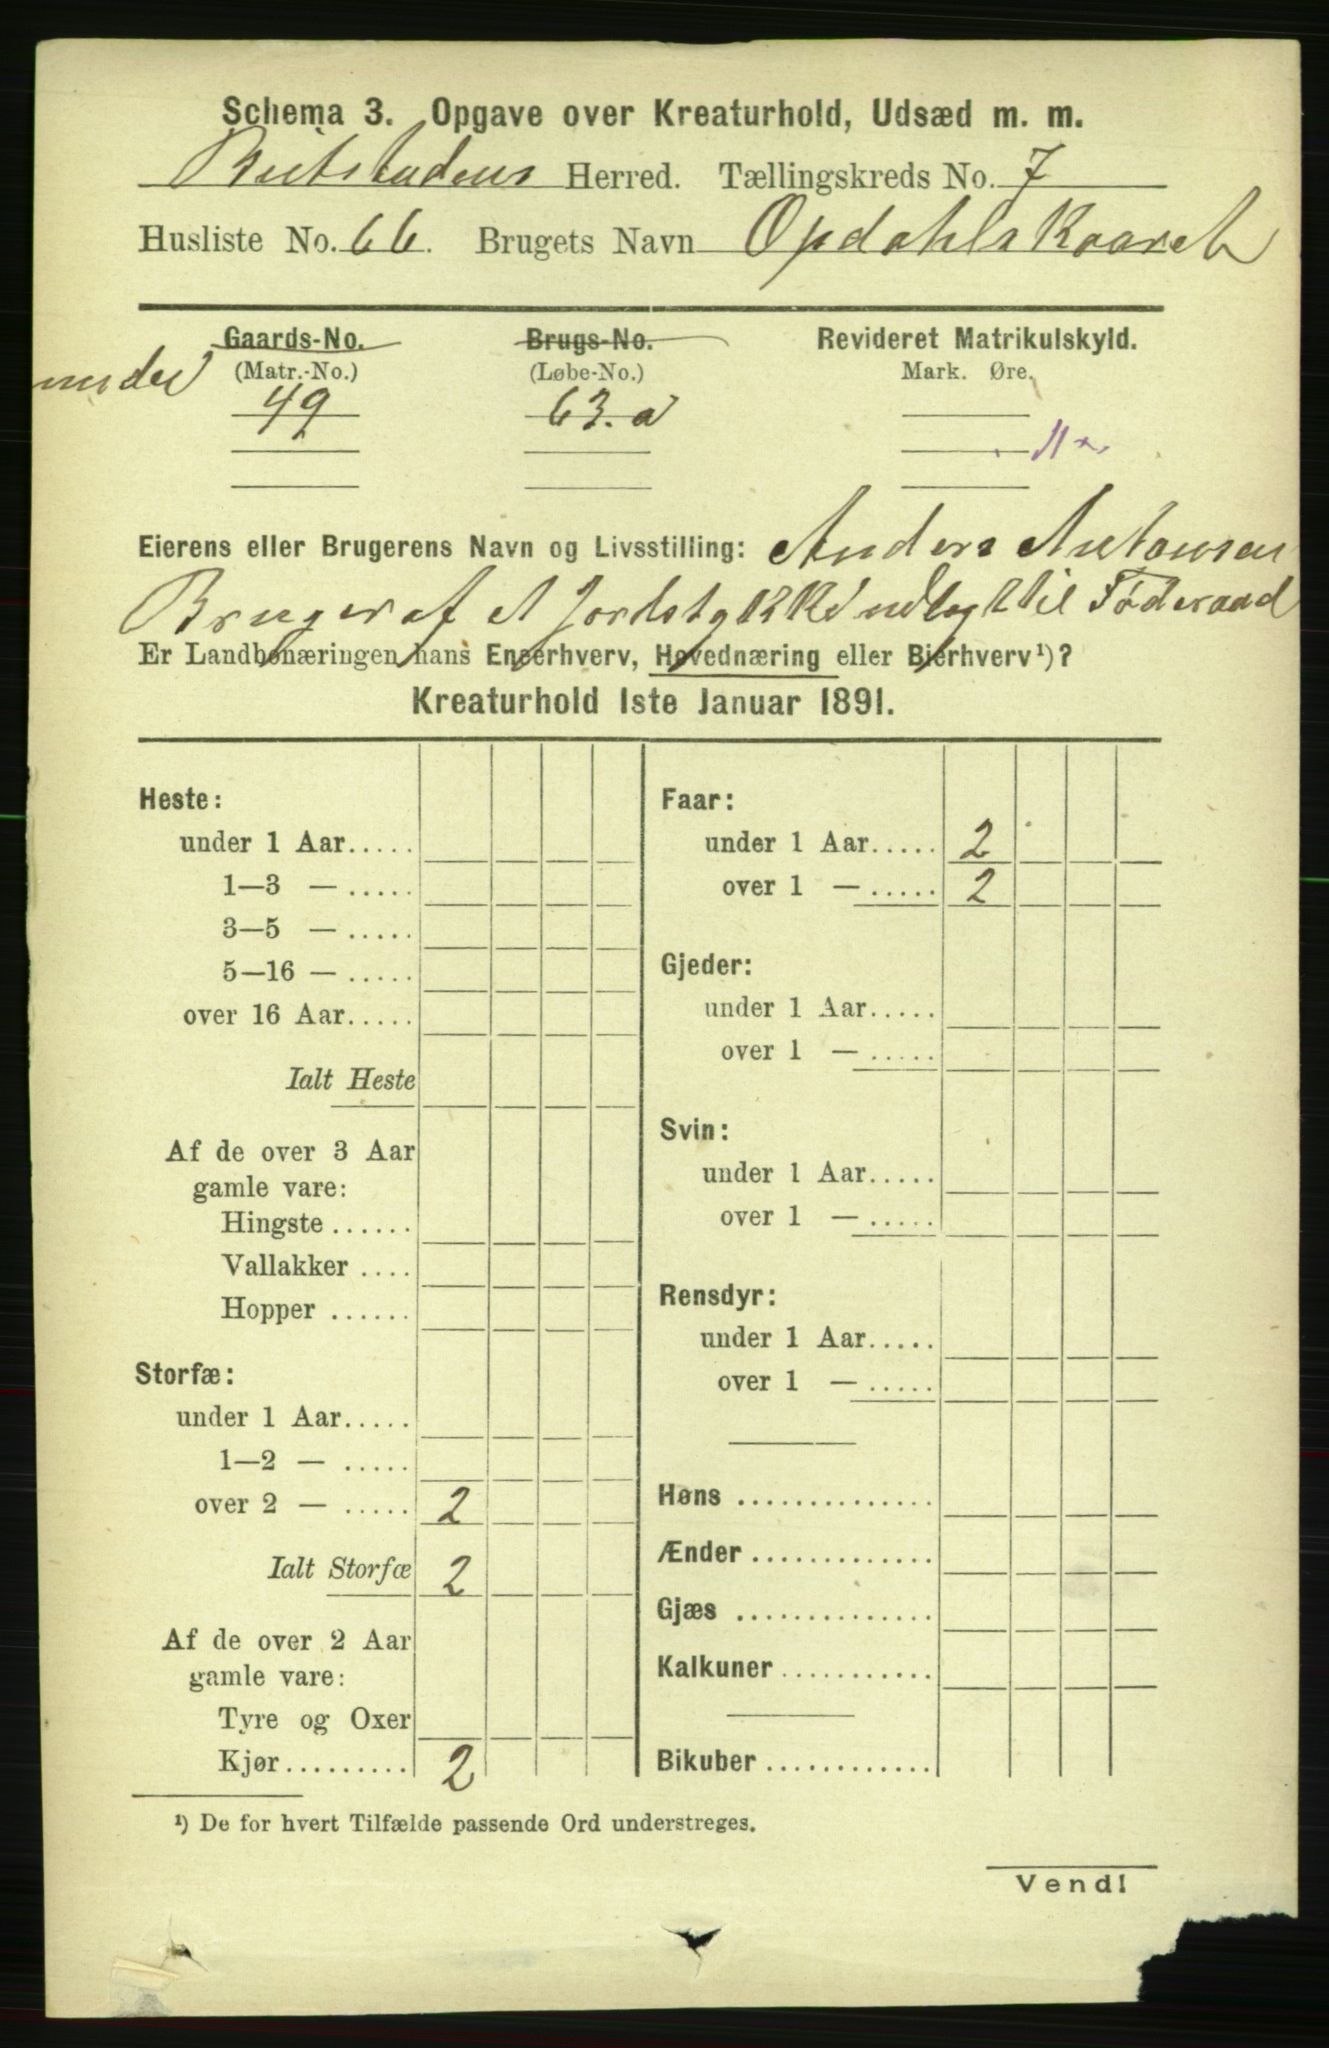 Schema 3. Opgave over Kreaturhold, Udsæd m. m.
Beitstadens Herred. Tællingskreds No. 7
Husliste No. 66. Brugets Navn Opdahlskaaret
Gaards-No. Brugs-No. Revideret Matrikulskyld.
under (Matr.-No.) (Løbe-No.) Mark. Øre.
49 63.a
Eierens eller Brugerens Navn og Livsstilling: Anders Antonsen
Bruger af et Jordstykke udlagt til Föderaad
Er Landbonæringen hans Eneerhverv, Hovednæring eller Bierhverv¹)?
Kreaturhold 1ste Januar 1891.
Heste:
under 1 Aar.....
1—3 — .....
3—5 — .....
5—16 — .....
over 16 Aar.....
Ialt Heste
Af de over 3 Aar
gamle vare:
Hingste ......
Vallakker ....
Hopper ......
Storfæ:
under 1 Aar.....
1—2 — .....
over 2 — ..... 2
Ialt Storfæ 2
Af de over 2 Aar
gamle vare:
Tyre og Oxer
Kjør......... 2
Faar:
under 1 Aar..... 2
over 1 — ..... 2
Gjeder:
under 1 Aar.....
over 1 — .....
Svin:
under 1 Aar.....
over 1 — .....
Rensdyr:
under 1 Aar.....
over 1 — .....
Høns ..............
Ænder .............
Gjæs ..............
Kalkuner ...........
Bikuber ............
¹) De for hvert Tilfælde passende Ord understreges.
Vend!